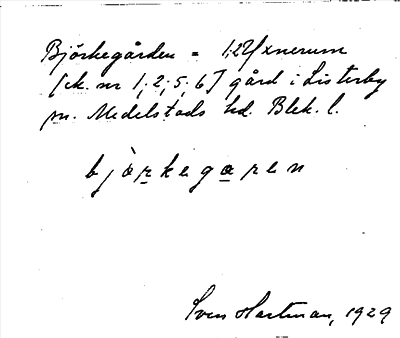 Björkegården = 1:27/xnerum
[ck. nr 1; 2; 5; 6] gård i Listerby
sn. Medelstads hd. Blek. l.
björkegaren
Sven Hartman, 1929